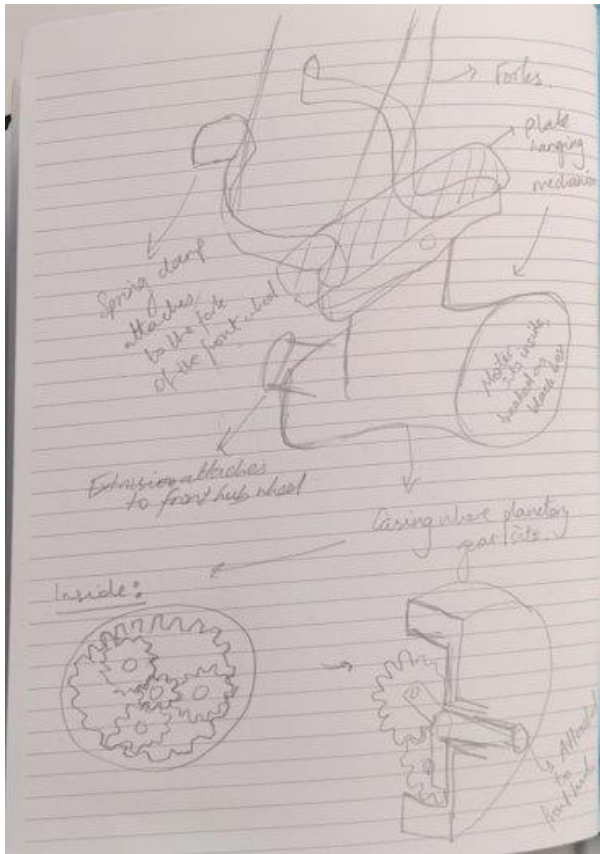 Forks.
plate
hanging
mechanism
Spring clamp
attaches
to the fork
of the front wheel
Motor
sits inside,
on
black box
Extrusion attaches
to front hub wheel
Casing where planetary
gear sits.
Inside:
Attached
to
front hub